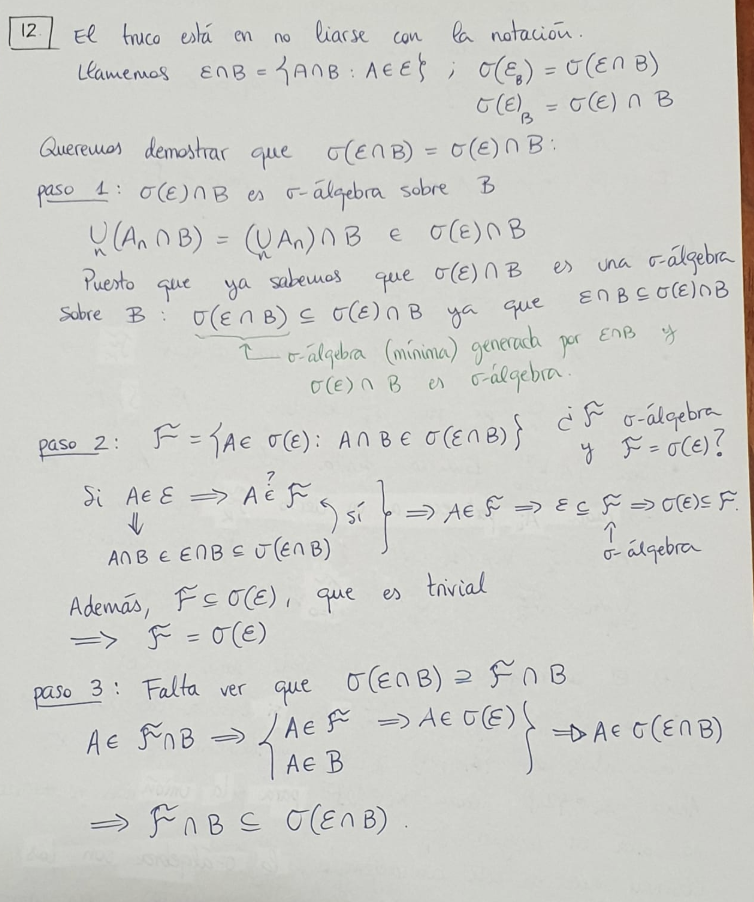 12. El truco está en no liarse con la notación.
Llamemos Ɛ∩B = {A∩B : A∈Ɛ} ; σ(Ɛ_B) = σ(Ɛ∩B)
σ(Ɛ)_B = σ(Ɛ) ∩ B
Queremos demostrar que σ(Ɛ∩B) = σ(Ɛ)∩B:
paso 1: σ(Ɛ)∩B es σ-álgebra sobre B
⋃_n (A_n ∩ B) = (⋃_n A_n) ∩ B ∈ σ(Ɛ)∩B
Puesto que ya sabemos que σ(Ɛ)∩B es una σ-álgebra
sobre B : σ(Ɛ∩B) ⊆ σ(Ɛ)∩B ya que Ɛ∩B ⊆ σ(Ɛ)∩B
↑ σ-álgebra (mínima) generada por Ɛ∩B y
σ(Ɛ) ∩ B es σ-álgebra.
paso 2: F̃ = {A∈ σ(Ɛ): A∩B ∈ σ(Ɛ∩B)} ¿F̃ σ-álgebra
y F̃ = σ(Ɛ)?
Si A∈Ɛ ⟹ A ∈? F̃
⇓ sí } ⟹ A∈F̃ ⟹ Ɛ ⊆ F̃ ⟹ σ(Ɛ) ⊆ F̃.
A∩B ∈ Ɛ∩B ⊆ σ(Ɛ∩B) ↑ σ-álgebra
Además, F̃ ⊆ σ(Ɛ), que es trivial
⟹ F̃ = σ(Ɛ)
paso 3: Falta ver que σ(Ɛ∩B) ⊇ F̃ ∩ B
A∈ F̃∩B ⟹ { A∈ F̃ ⟹ A∈ σ(Ɛ) } ⟹ A∈ σ(Ɛ∩B)
A∈ B
⟹ F̃ ∩ B ⊆ σ(Ɛ∩B).